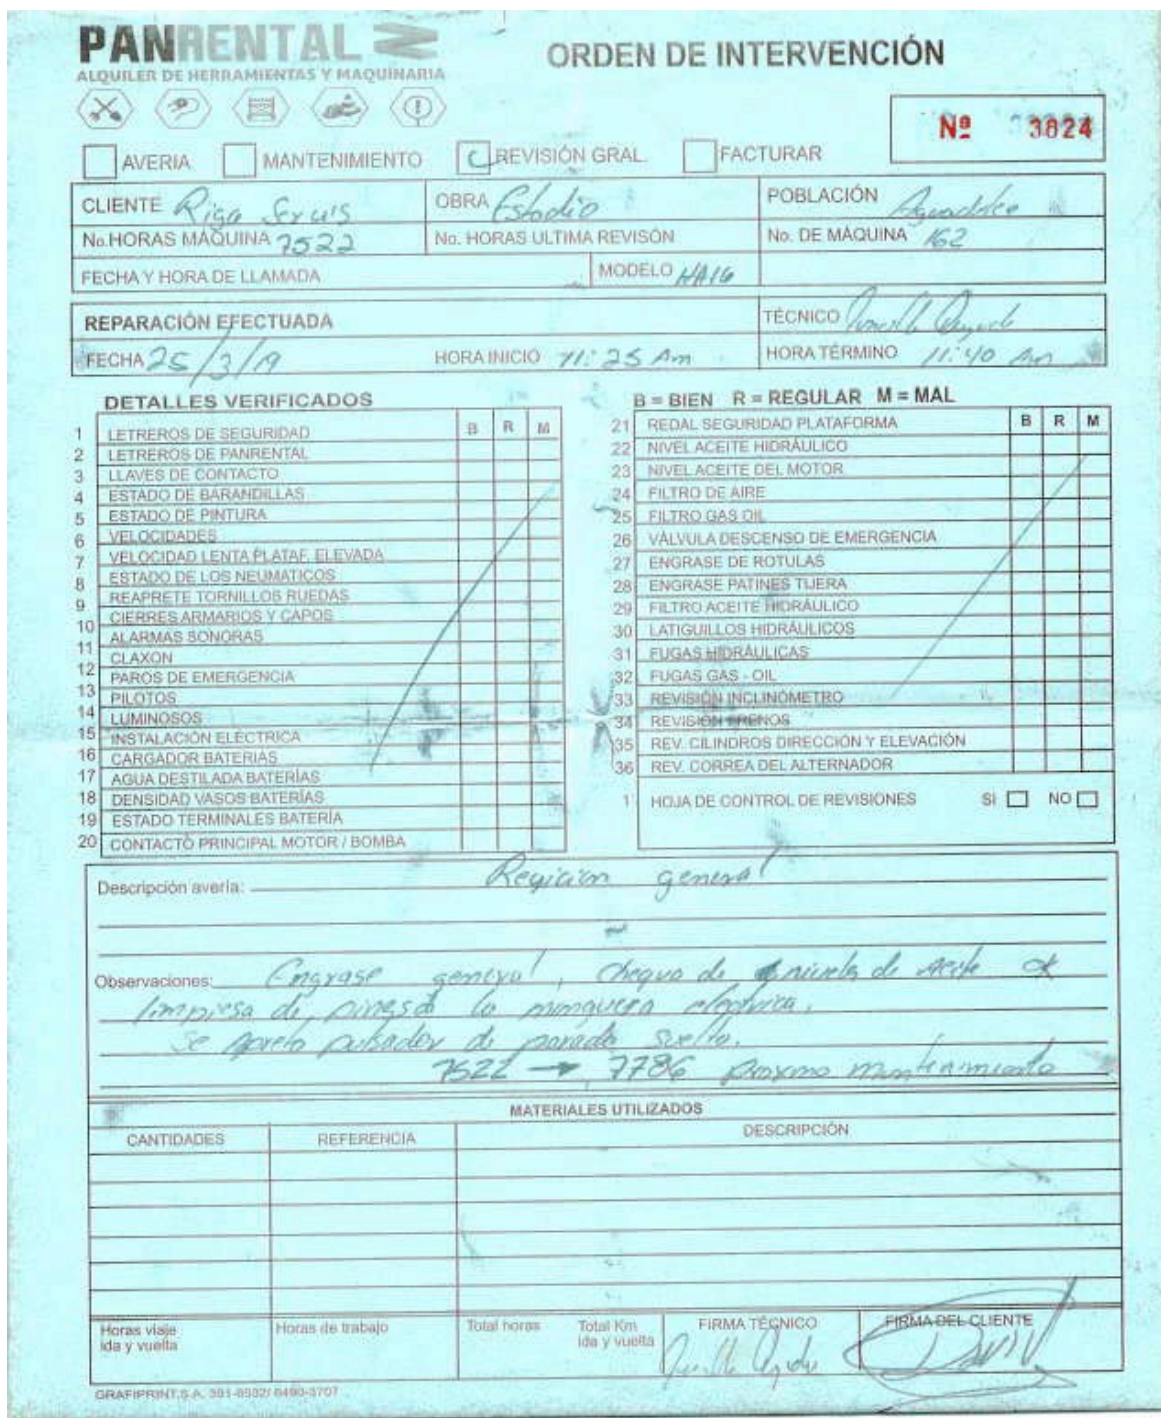 PANRENTAL
ORDEN DE INTERVENCIÓN
ALQUILER DE HERRAMIENTAS Y MAQUINARIA
Nº 3824
AVERIA MANTENIMIENTO REVISIÓN GRAL. FACTURAR
CLIENTE Riga OBRA Estadio POBLACIÓN Aguadulce
No.HORAS MÁQUINA 7522 No. HORAS ULTIMA REVISÓN No. DE MÁQUINA 162
FECHA Y HORA DE LLAMADA MODELO HA16
REPARACIÓN EFECTUADA TÉCNICO
FECHA 25/3/19 HORA INICIO 11:25 Am HORA TÉRMINO 11:40 Am
DETALLES VERIFICADOS B = BIEN R = REGULAR M = MAL
B R M
1 LETREROS DE SEGURIDAD
2 LETREROS DE PANRENTAL
3 LLAVES DE CONTACTO
4 ESTADO DE BARANDILLAS
5 ESTADO DE PINTURA
6 VELOCIDADES
7 VELOCIDAD LENTA PLATAF. ELEVADA
8 ESTADO DE LOS NEUMATICOS
9 REAPRETE TORNILLOS RUEDAS
10 CIERRES ARMARIOS Y CAPOS
11 ALARMAS SONORAS
12 CLAXON
13 PAROS DE EMERGENCIA
14 PILOTOS
15 LUMINOSOS
16 INSTALACIÓN ELÉCTRICA
17 CARGADOR BATERIAS
18 AGUA DESTILADA BATERÍAS
19 DENSIDAD VASOS BATERÍAS
ESTADO TERMINALES BATERÍA
20 CONTACTO PRINCIPAL MOTOR / BOMBA
B R M
21 REDAL SEGURIDAD PLATAFORMA
22 NIVEL ACEITE HIDRÁULICO
23 NIVEL ACEITE DEL MOTOR
24 FILTRO DE AIRE
25 FILTRO GAS OIL
26 VÁLVULA DESCENSO DE EMERGENCIA
27 ENGRASE DE ROTULAS
28 ENGRASE PATINES TIJERA
29 FILTRO ACEITE HIDRÁULICO
30 LATIGUILLOS HIDRÁULICOS
31 FUGAS HIDRÁULICAS
32 FUGAS GAS - OIL
33 REVISIÓN INCLINÓMETRO
34 REVISIÓN FRENOS
35 REV. CILINDROS DIRECCIÓN Y ELEVACIÓN
36 REV. CORREA DEL ALTERNADOR
1 HOJA DE CONTROL DE REVISIONES SI NO
Descripción avería: Revicion general
Observaciones: Engrase general, chequo de niveles de aceite ok
limpiesa de pines de la manguera electrica.
se apreto pulsador de parada suelto.
7522 → 7786 proximo mantenimiento
MATERIALES UTILIZADOS
CANTIDADES REFERENCIA DESCRIPCIÓN
Horas viaje ida y vuelta Horas de trabajo Total horas Total Km ida y vuelta FIRMA TÉCNICO FIRMA DEL CLIENTE
GRAFIPRINT,S.A. 391-8532/ 6490-3707